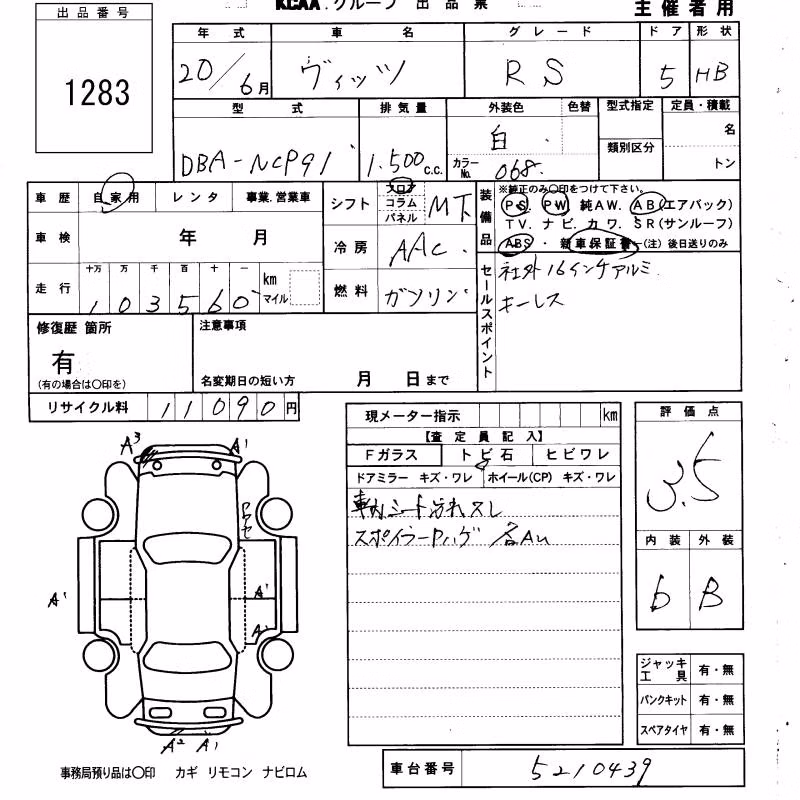 KCAA.グループ 出品票 主催者用
出品番号
1283
年式 車名 グレード ドア 形状
20/6月 ヴィッツ RS 5 HB
型式 排気量 外装色 色替 型式指定 定員・積載
DBA-NCP91 1.500c.c. 白 名
カラーNo. 068 類別区分 トン
車歴 自家用 レンタ 事業.営業車
車検 年 月
走行 十万 万 千 百 十 一 km マイル
103560
シフト フロア コラム パネル MT
冷房 AAC
燃料 ガソリン
装備品 ※純正のみ○印をつけて下さい。
PS. PW 純AW. AB(エアバック)
TV.ナビ.カワ.SR(サンルーフ)
ABS・新車保証書-(注)後日送りのみ
セールスポイント 社外16インチアルミ
キーレス
修復歴 箇所 注意事項
有
(有の場合は○印を) 名変期日の短い方 月 日まで
リサイクル料 11090円
現メーター指示 km
【査定員記入】
Fガラス トビ石 ヒビワレ
ドアミラー キズ・ワレ ホイール(CP) キズ・ワレ
車内シート汚れスレ
スポイラーPハゲ 各AU
評価点
3.5
内装 外装
b B
A3 A1
A1 A1
A1
A2 A1
ジャッキ工具 有・無
パンクキット 有・無
スペアタイヤ 有・無
事務局預り品は○印 カギ リモコン ナビロム
車台番号 5210439